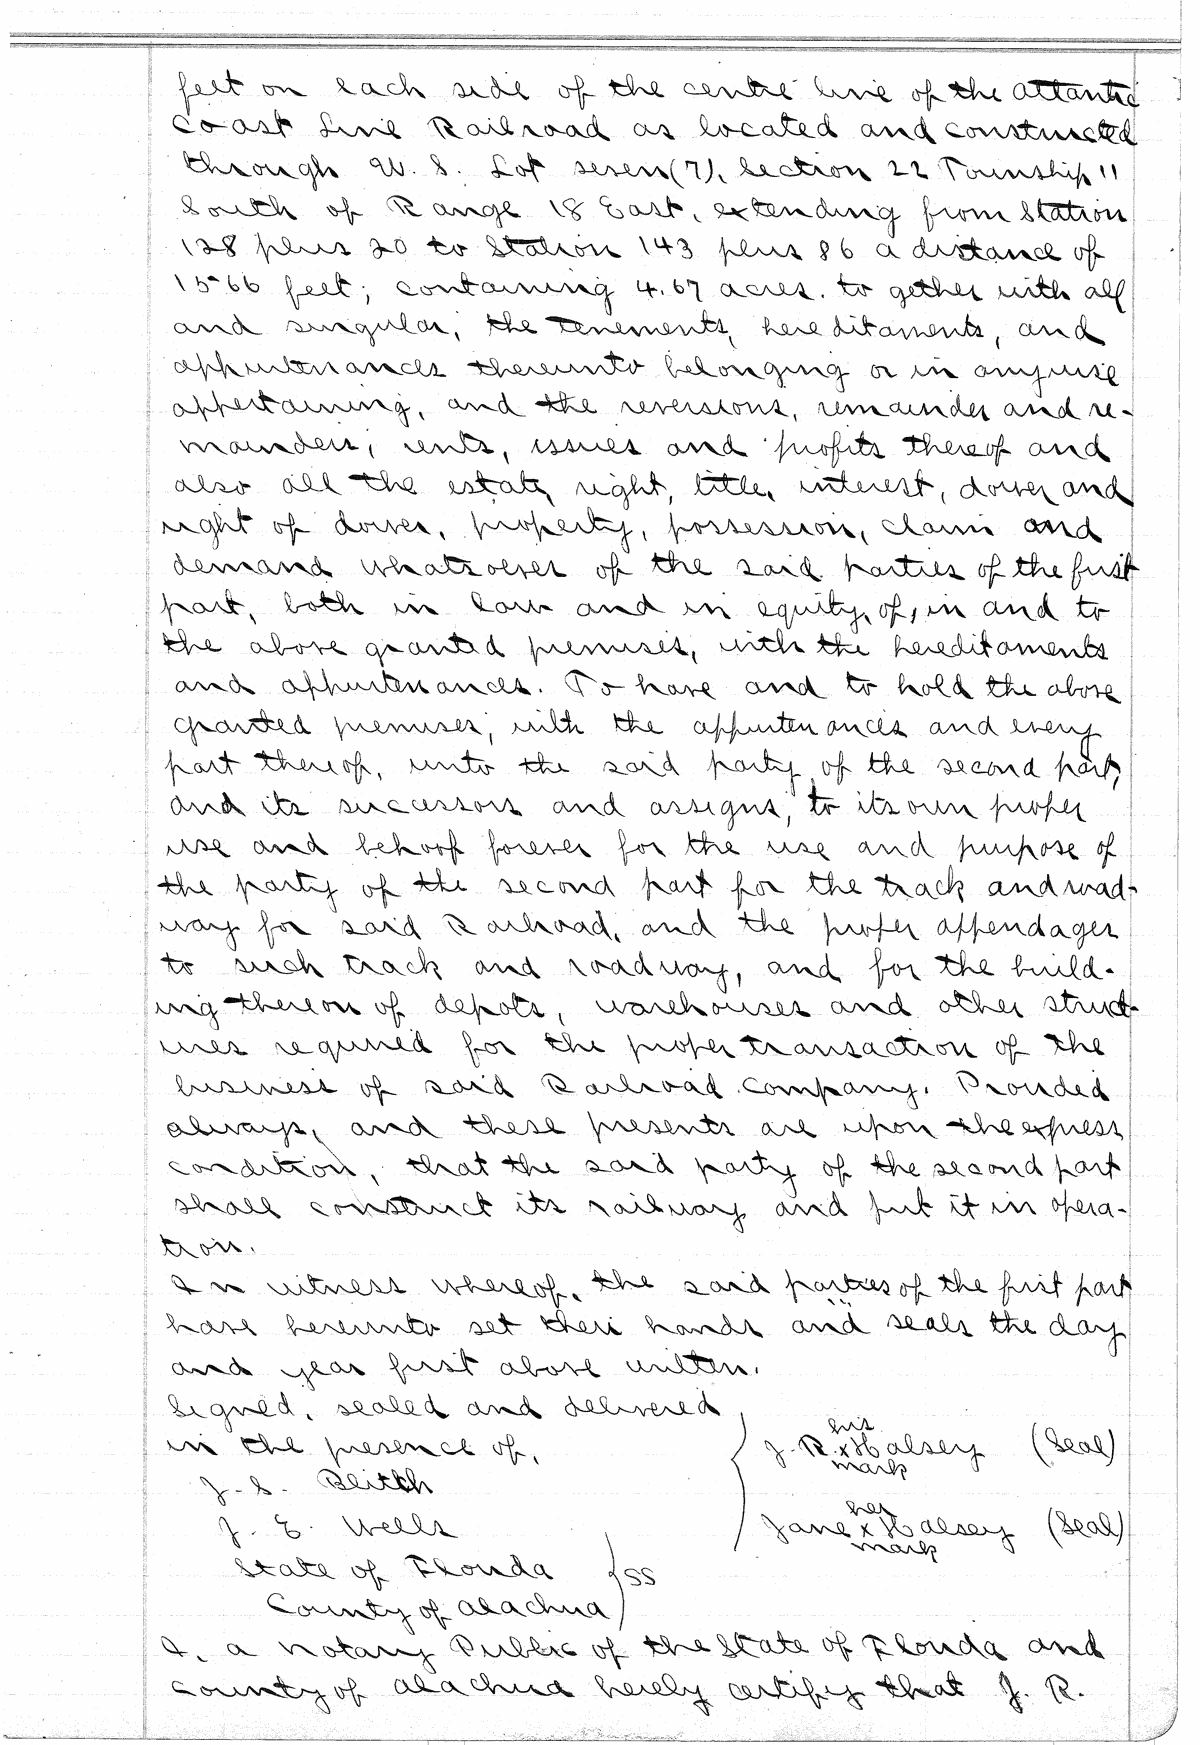 feet on each side of the centre line of the Atlantic
Coast Line Railroad as located and constructed
through W. S. Lot seven (7), Section 22 Township 11
South of Range 18 East, extending from Station
128 plus 20 to Station 143 plus 86 a distance of
1566 feet; containing 4.67 acres. to gether with all
and singular, the tenements, hereditaments, and
appurtenances thereunto belonging or in anywise
appertaining, and the reversions, remainder and re-
mainders, rents, issues and profits thereof and
also all the estate, right, title, interest, dower and
right of dower, property, possession, claim and
demand whatsoever of the said parties of the first
part, both in law and in equity, of, in and to
the above granted premises, with the hereditaments
and appurtenances. To have and to hold the above
granted premises, with the appurtenances and every
part thereof, unto the said party of the second part,
and its successors and assigns, to its own proper
use and behoof forever for the use and purpose of
the party of the second part for the track and road-
way for said Railroad, and the proper appendages
to such track and roadway, and for the build-
ing thereon of depots, warehouses and other struct-
ures required for the proper transaction of the
business of said Railroad Company. Provided
always, and these presents are upon the express
condition, that the said party of the second part
shall construct its railway and put it in opera-
tion.
In witness whereof, the said parties of the first part
have hereunto set their hands and seals the day
and year first above written.
Signed, sealed and delivered
in the presence of,
his
J. R. x Halsey (Seal)
mark
J. S. Blitch
her
J. E. Wells Jane x Halsey (Seal)
mark
State of Florida
SS
County of Alachua
I, a notary Public of the State of Florida and
County of Alachua hereby certify that J. R.